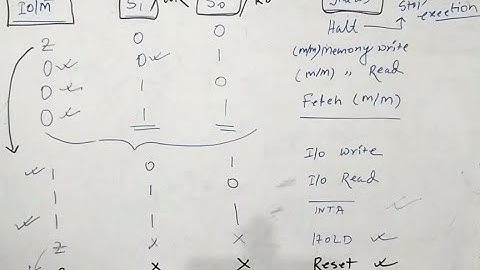 IO/M S1, S0,
stop execution
Z 0 0 Halt
0 0 1 (m/m) memory write
0 1 0 (m/m) " Read
0 1 1 Fetch (m/m)
1 0 1 I/O write
1 1 0 I/O Read
1 1 1 INTA
Z X X HOLD
X X Reset